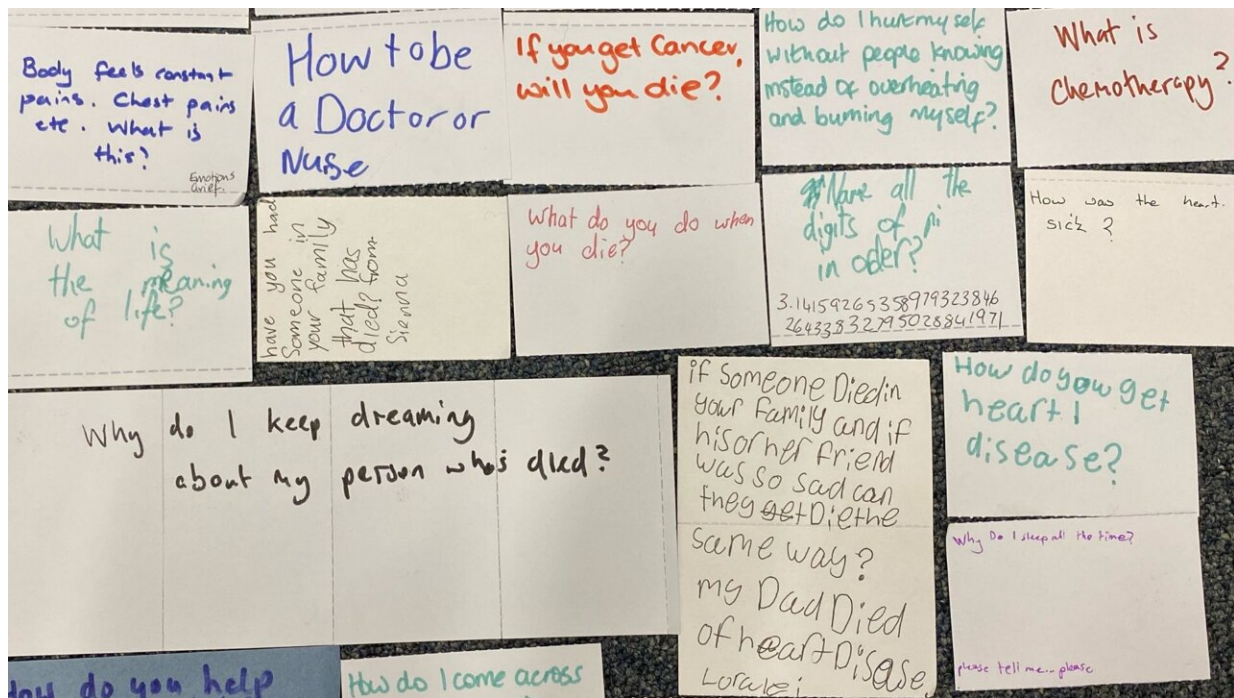 Body feels constant
pains. Chest pains
etc. What is
this?
Emotions
Grief.
How to be
a Doctor or
Nurse
If you get Cancer,
will you die?
How do I hurt myself
without people knowing
instead of overheating
and burning myself?
What is
chemotherapy?
What is
the meaning
of life?
have you had
Someone in
your family
that has
died? from
Sienna
What do you do when
you die?
Name all the
digits of pi
in oder?
3.14159265358979323846
26433832795028841971
How was the heart
sick?
Why do I keep dreaming
about my person who's died?
if Someone Died in
your family and if
his or her friend
was so sad can
they get Die the
same way?
my Dad Died
of heart Disease.
Loralei
How do you get
heart
disease?
Why Do I sleep all the time?
please tell me... please
How do you help
How do I come across